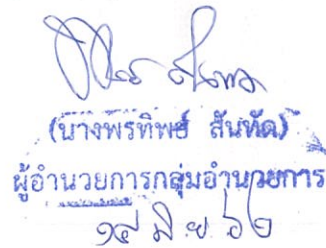 (นางพรทิพย์ สันทัด)
ผู้อำนวยการกลุ่มอำนวยการ
๑๔ มิ.ย ๖๒